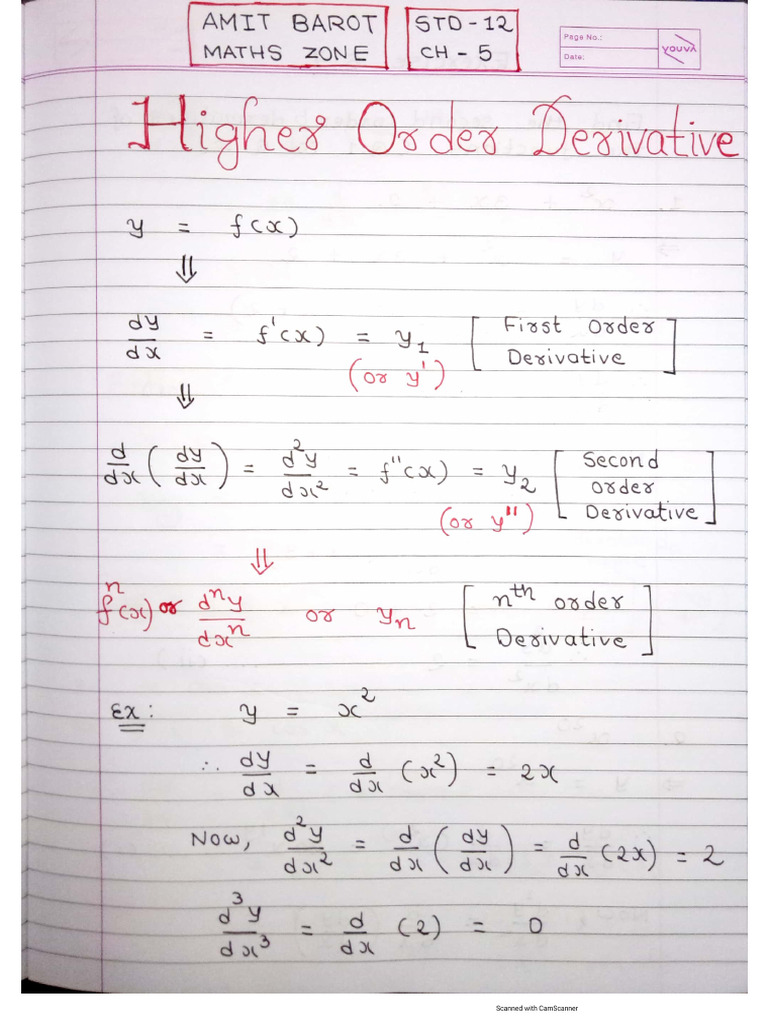 AMIT BAROT STD - 12
MATHS ZONE CH - 5
Page No.:
Date:
YOUVA
Higher Order Derivative
y = f(x)
⇓
dy/dx = f'(x) = y₁ [First Order Derivative]
(or y')
⇓
d/dx (dy/dx) = d²y/dx² = f''(x) = y₂ [Second order Derivative]
(or y'')
⇓
fⁿ(x) or dⁿy/dxⁿ or yₙ [nᵗʰ order Derivative]
Ex: y = x²
∴ dy/dx = d/dx (x²) = 2x
Now, d²y/dx² = d/dx (dy/dx) = d/dx (2x) = 2
d³y/dx³ = d/dx (2) = 0
Scanned with CamScanner